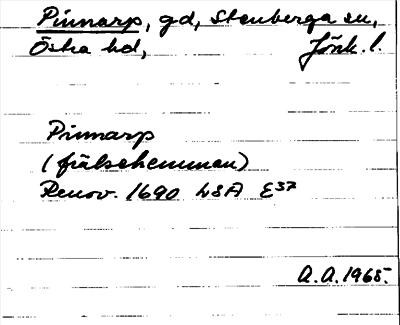 Pinnarp, gd, Stenberga sn,
Östra hd, Jönk. l.
Pinnarp
(frälsehemman)
Renov. 1690 LSA E37
A.A. 1965.